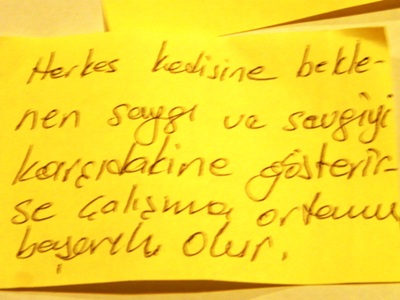 Herkes kedisine bekle-
nen saygı ve sevgiyi
karşıdakine gösterir-
se çalışma ortamı
başarılı olur.